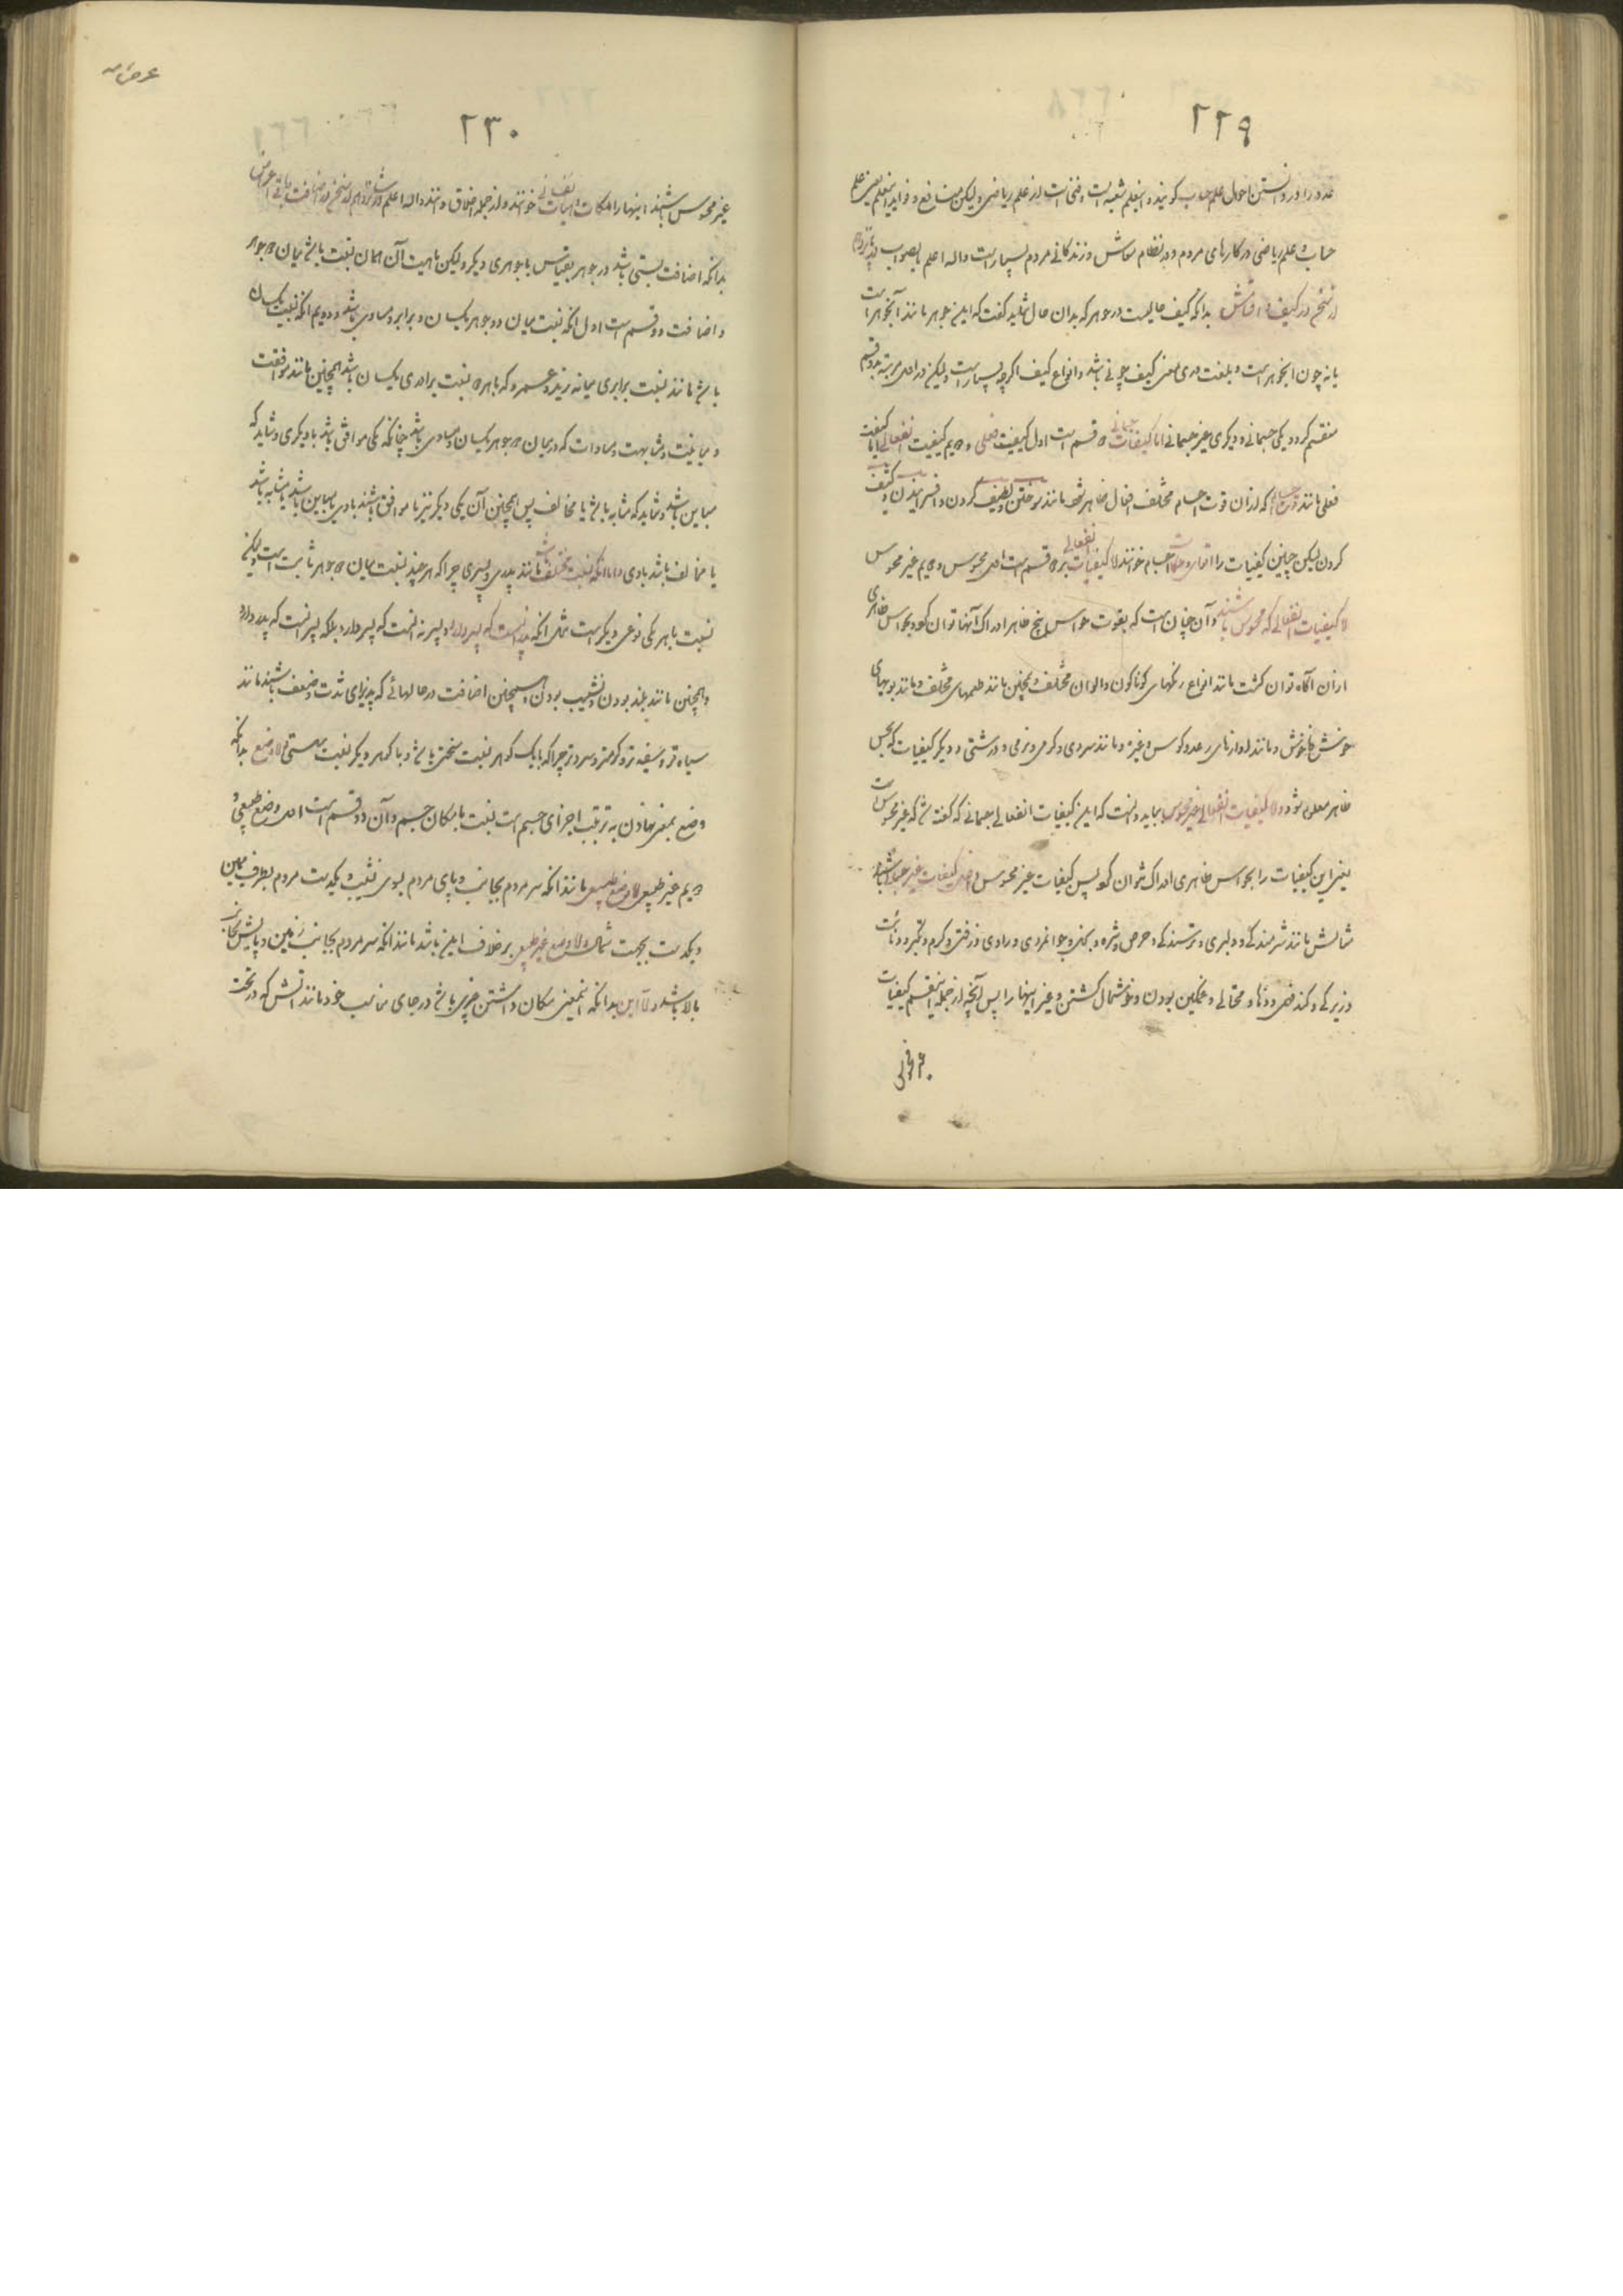 ۲۲۹
عدد را و در دانستن احوال علم حساب گویند و اینعلم شعبه است و فنی است از علم ریاضی و لیکن منافع و فواید اینعلم یعنی علم
حساب و علم ریاضی در کارهای مردم و در نظام معاش و زندگانی مردم بسیار است والله اعلم بالصواب
در کیف و اقسامش بدانکه کیف حالیست در جوهر که بدان حال شاید گفت که این جوهر مانند آنجوهر است
یا نه چون انجوهر است و بلغت دری معنی کیف چونی باشد و انواع کیف اگرچه بسیار است و لیکن در اصل مرتبه بدو قسم
منقسم گردد یکی جسمانی و دیگری غیر جسمانی اما کیفیات جسمانی ۲ قسم است اول کیفیت فعلی و ۲یم کیفیت انفعالی اما کیفیت
فعلی مانند که از ان قوت اجسام مختلف افعال ظاهر شود مانند سوختن و لطیف کردن و افسرانیدن و کثیف
کردن لیکن چنین کیفیات را اجسام خوانند کیفیات انفعالی بر ۲ قسم است اول محسوس و ۲یم غیر محسوس
کیفیات انفعالی که محسوس باشند و آن چنان است که بقوت حواس پنج ظاهر ادراک آنها توان کرد و بحواس ظاهری
ازان آگاه توان گشت مانند انواع رنگهای گوناگون و الوان مختلف و همچنین مانند طعمهای مختلف و مانند بویهای
خوش و ناخوش و مانند اوازهای رعد و کوس و غیره و مانند سردی و گرمی و نرمی و درشتی و دیگر کیفیات که بحس
ظاهر معلوم شود کیفیات انفعالی غیر محسوس بباید دانست که این کیفیات انفعالی جسمانی که گفته شد که غیر محسوس است
یعنی این کیفیات را بحواس ظاهری ادراک نتوان کرد پس کیفیات غیر محسوس کیفیات غیر جسمانی باشد
مثالش مانند شرمندگی و دلیری و ترسندگی و حرص و شره و بخیلی و جوانمردی و رادی و زفتی و کرم و تکبر و دنائت
و زیرکی و کند فهمی و دها و محتالی و غمگین بودن و خوشحال گشتن و غیر اینها را پس آنچه از جمله اینقسم کیفیات
۲۳۰
غیر محسوس باشند اینها را ملکات و هیات نفسانی خوانند و از جمله اخلاق دانند والله اعلم
بدانکه اضافت نسبتی باشد در جوهر بقیاس با جوهری دیگر و لیکن ماهیت آن همان نسبت باشد میان ۲ جوهر
و اضافت دو قسم است اول انکه نسبت میان دو جوهر یکسان و برابر و مساوی باشد و دویم انکه نسبت یکسان
باشد مانند نسبت برابری میانه زید و عمرو که با هر ۲ نسبت برادری یکسان باشد همچنین مانند موافقت
و مباینت و مشابهت و مساوات که در میان ۲ جوهر یکسان و مساوی باشد چنانکه یکی موافق باشد با دیگری و شاید که
مباین باشد و شاید که مشابه باشد یا مخالف پس همچنین آن یکی دیگر نیز یا موافق باشند با وی یا مباین باشد یا مشابه باشد
یا مخالف باشد با وی و اما انکه نسبت مختلف باشد مانند پدری و پسری چرا که هر چند نسبت میان ۲ جوهر ثابت است و لیکن
نسبت با هر یکی نوعی دیگر است مثل انکه پدر انست که پسر دارد و پسر نه انست که پسر دارد بلکه پسر انست که پدر دارد
و همچنین مانند بلند بودن و نشیب بودن و همچنین اضافت در حالهائی که پذیرای شدت و ضعف باشند مانند
سیاه تر و سفید تر و گرمتر و سرد تر چرا که با یک گوهر نسبت سختی باشد و با گوهر دیگر نسبت سستی وضع بدانکه
وضع بمعنی نهادن به ترتیب اجزای جسم است نسبت با مکان جسم و آن دو قسم است اول وضع طبیعی و
۲یم غیر طبیعی وضع طبیعی مانند انکه سر مردم بجانب و پای مردم بسوی نشیب و یکدست مردم بطرف یمین
و یکدست بجهت شمال وضع غیر طبیعی بر خلاف این باشد مانند انکه سر مردم بجانب زمین و پایش بجانب
بالا باشد این بدانکه اینمعنی مکان داشتن چیزی باشد در جای مناسب خود مانند آتش که در تحت